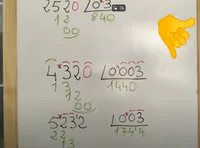 2520 | 0'3
12 840
00
4'320 | 0'003
13 1440
12
00
5'232 | 0'003
22 1744
13